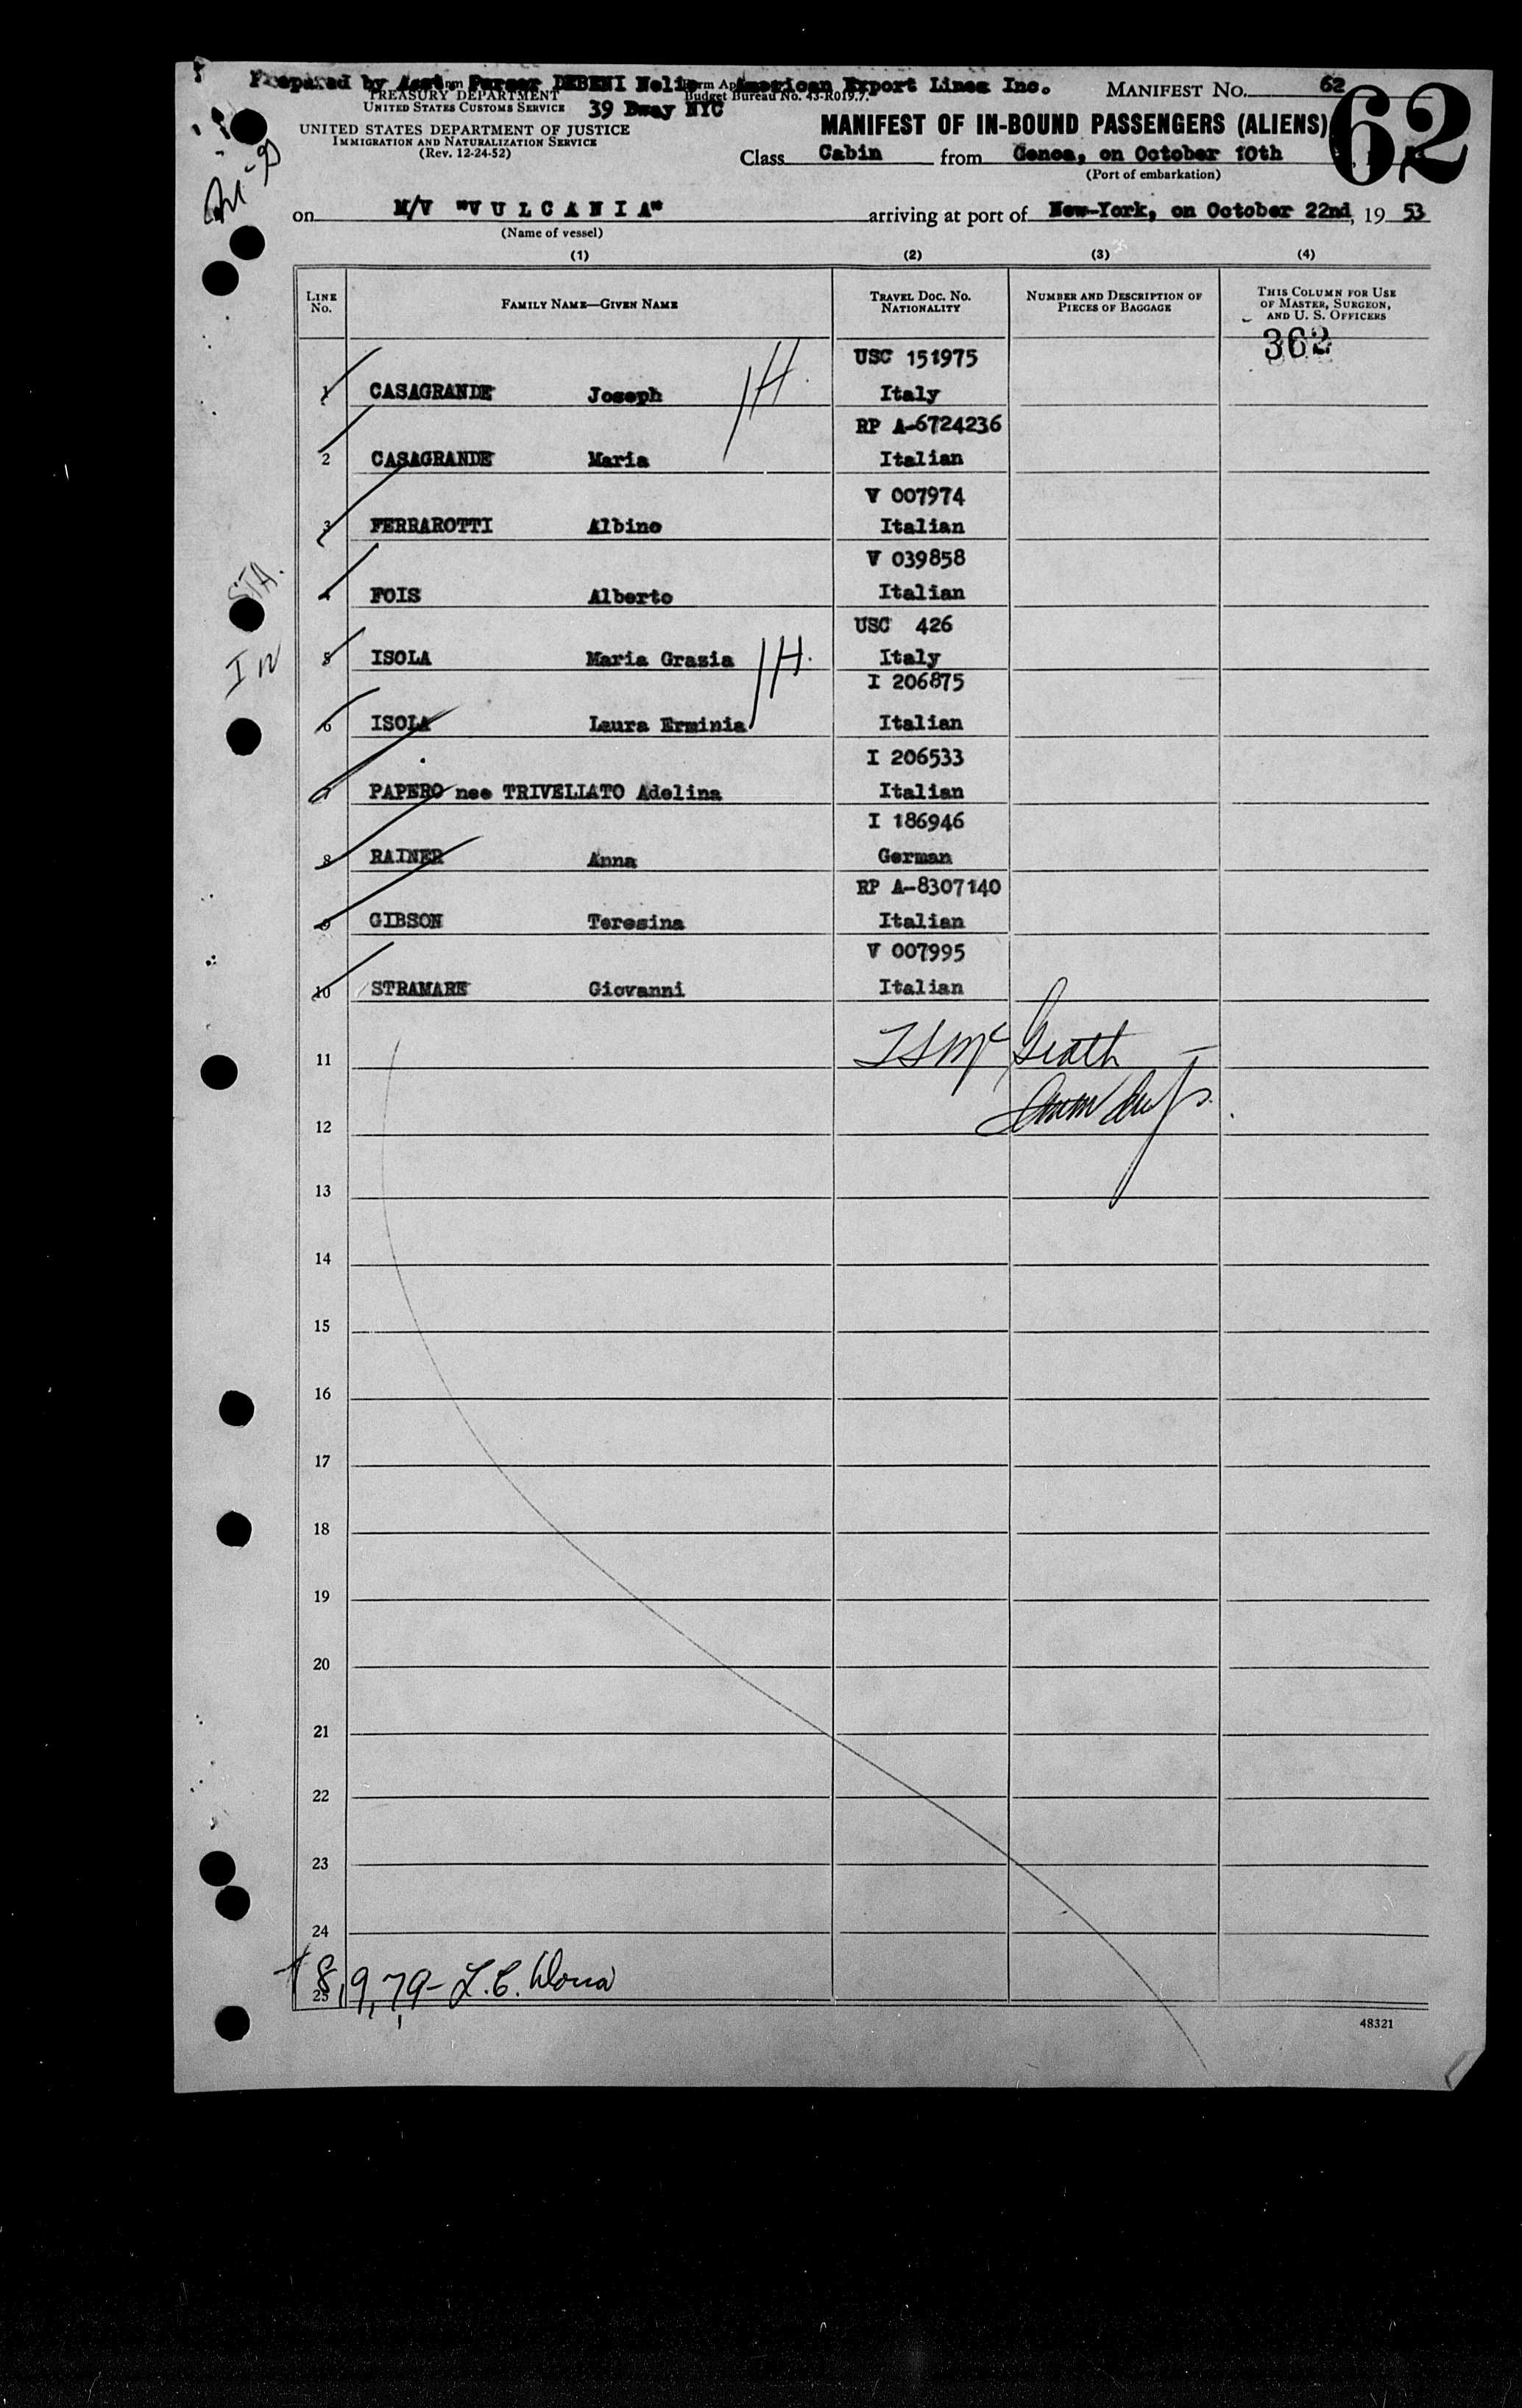 Prepared by Asst. Purser DEBENI Nelio American Export Lines Inc. MANIFEST No. 62
TREASURY DEPARTMENT Budget Bureau No. 43-R019.7.
UNITED STATES CUSTOMS SERVICE 39 Bway NYC
62
UNITED STATES DEPARTMENT OF JUSTICE MANIFEST OF IN-BOUND PASSENGERS (ALIENS)
IMMIGRATION AND NATURALIZATION SERVICE
(Rev. 12-24-52)
Class Cabin from Genoa, on October 10th
(Port of embarkation)
on M/V "VULCANIA" arriving at port of New-York, on October 22nd, 19 53
(Name of vessel)
(1) (2) (3) (4)
LINE No. FAMILY NAME—GIVEN NAME TRAVEL DOC. NO. NATIONALITY NUMBER AND DESCRIPTION OF PIECES OF BAGGAGE THIS COLUMN FOR USE OF MASTER, SURGEON, AND U. S. OFFICERS
362
USC 151975
1 CASAGRANDE Joseph Italy
RP A-6724236
2 CASAGRANDE Maria Italian
V 007974
3 FERRAROTTI Albino Italian
V 039858
4 FOIS Alberto Italian
USC 426
5 ISOLA Maria Grazia Italy
I 206875
6 ISOLA Laura Erminia Italian
I 206533
7 PAPERO nee TRIVELIATO Adelina Italian
I 186946
8 RAINER Anna German
RP A-8307140
9 GIBSON Teresina Italian
V 007995
10 STRAMARE Giovanni Italian
11
12
13
14
15
16
17
18
19
20
21
22
23
24
25
48321